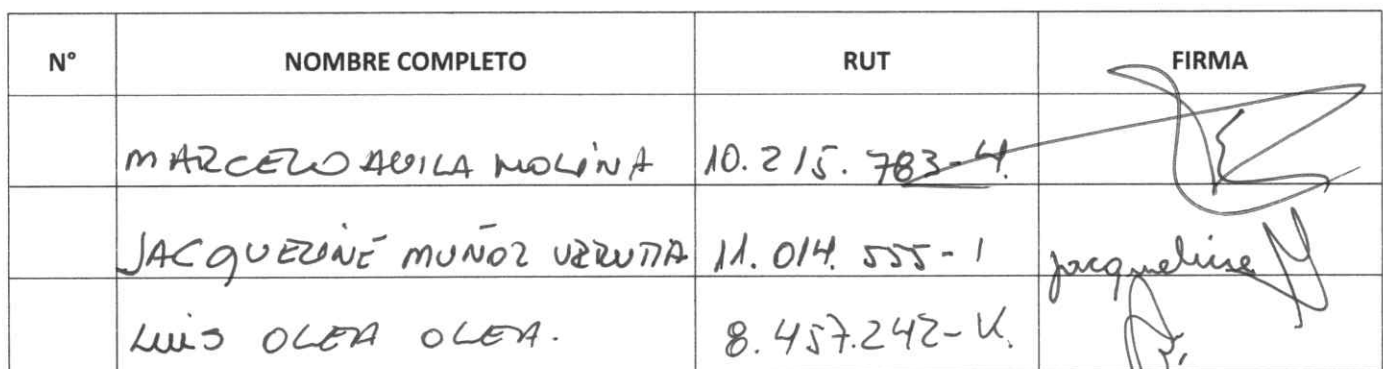 N° NOMBRE COMPLETO RUT FIRMA
MARCELO AVILA MOLINA 10.215.783-4.
JACQUELINE MUÑOZ 11.014.555-1 Jacqueline M
LUIS OLEA OLEA. 8.457.242-K.